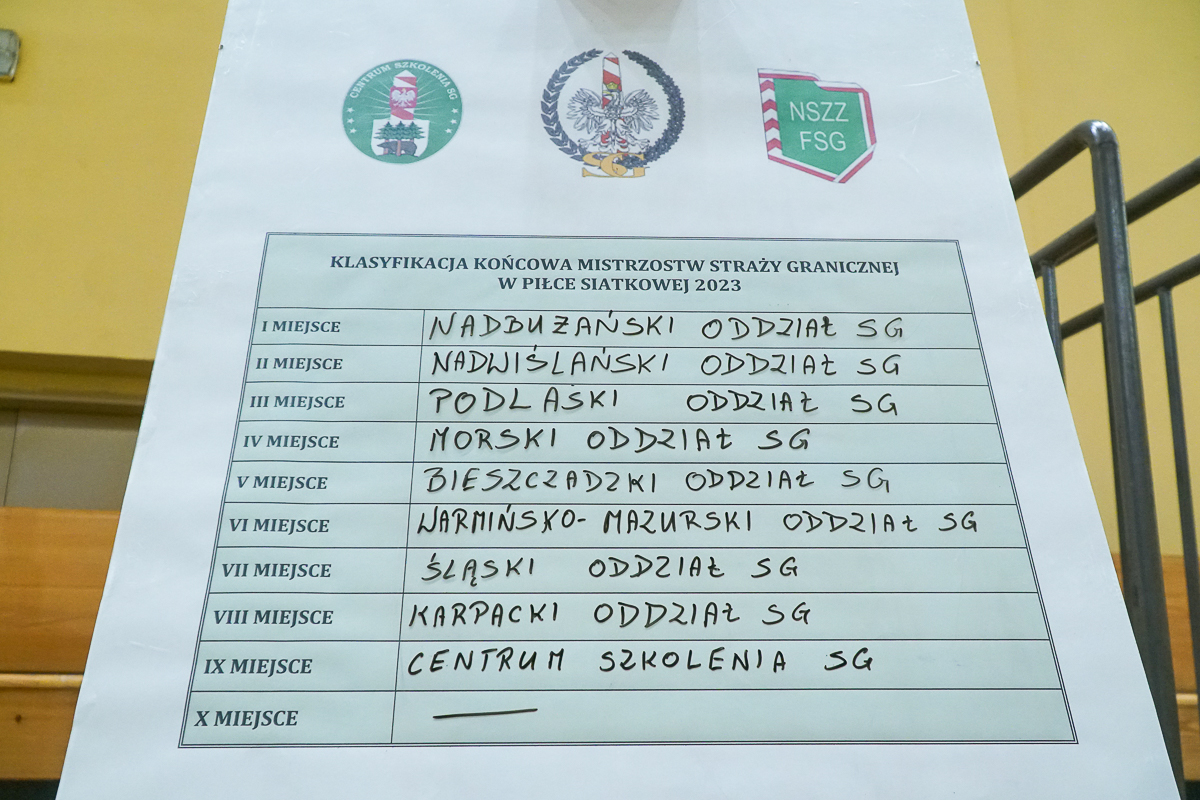 CENTRUM SZKOLENIA SG
SG
NSZZ
FSG
KLASYFIKACJA KOŃCOWA MISTRZOSTW STRAŻY GRANICZNEJ
W PIŁCE SIATKOWEJ 2023
I MIEJSCE NADBUŻAŃSKI ODDZIAŁ SG
II MIEJSCE NADWIŚLAŃSKI ODDZIAŁ SG
III MIEJSCE PODLASKI ODDZIAŁ SG
IV MIEJSCE MORSKI ODDZIAŁ SG
V MIEJSCE BIESZCZADZKI ODDZIAŁ SG
VI MIEJSCE WARMIŃSKO-MAZURSKI ODDZIAŁ SG
VII MIEJSCE ŚLĄSKI ODDZIAŁ SG
VIII MIEJSCE KARPACKI ODDZIAŁ SG
IX MIEJSCE CENTRUM SZKOLENIA SG
X MIEJSCE —